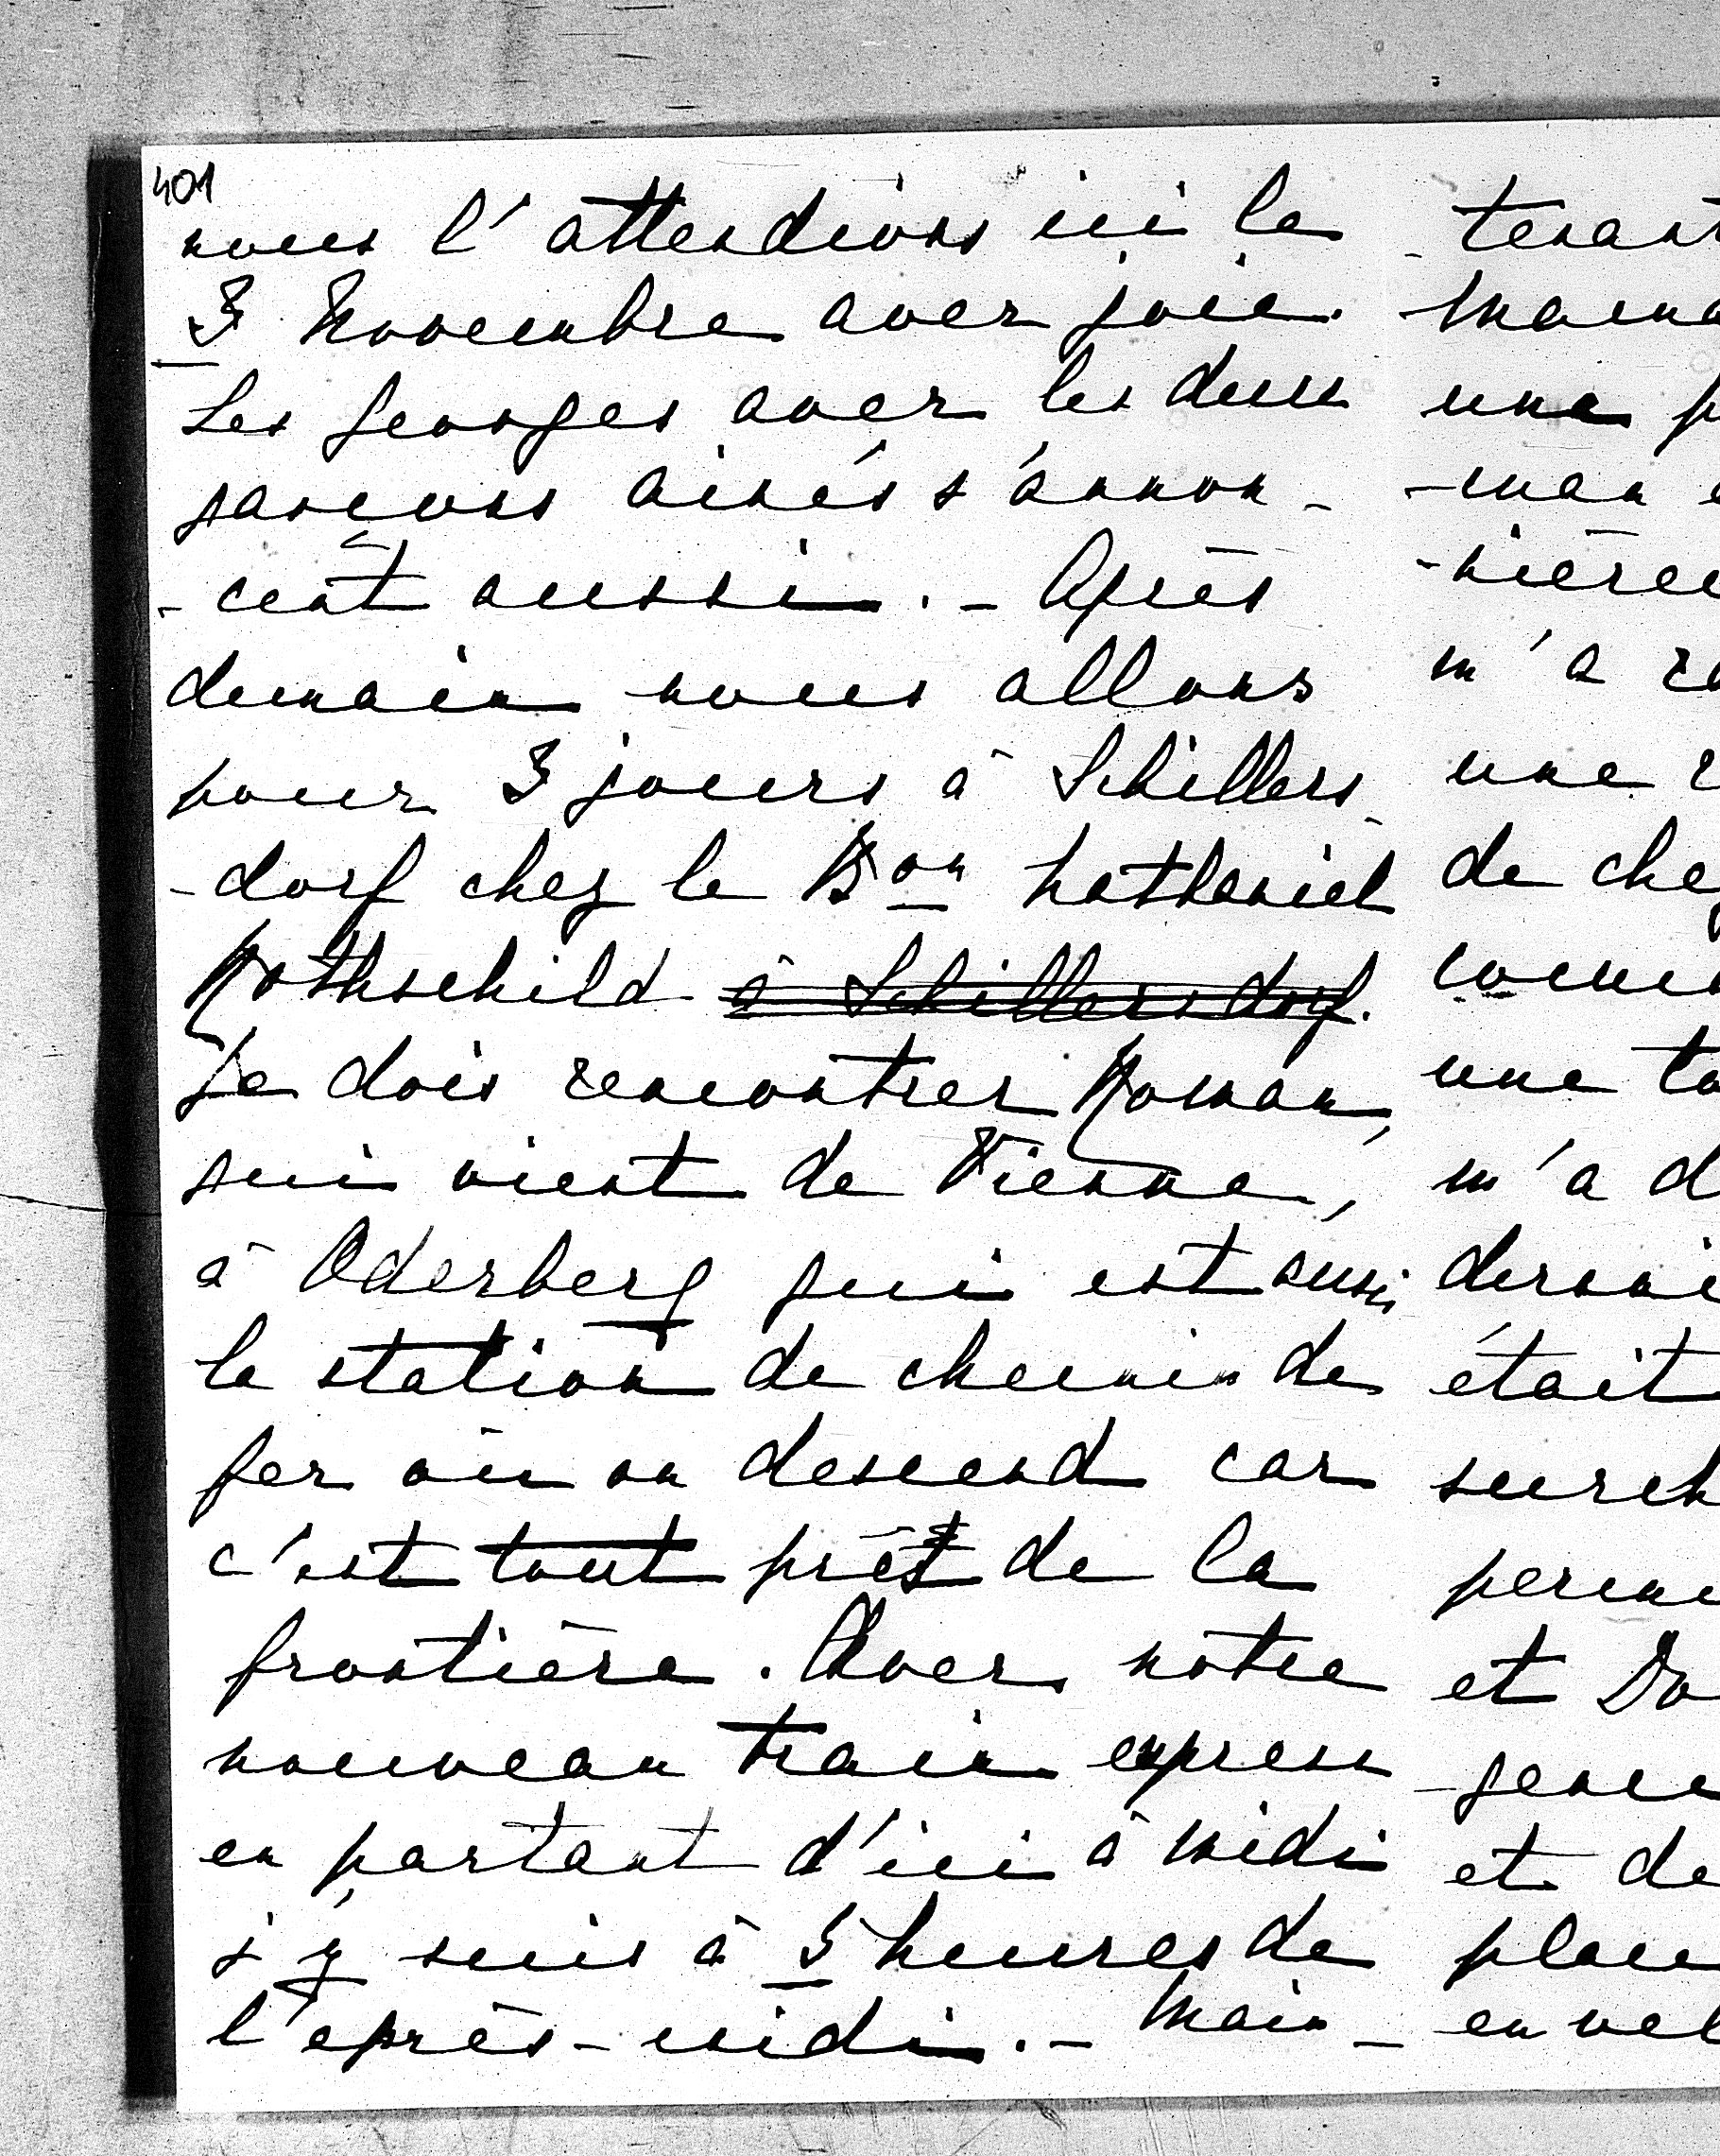 401
nous l'attendions ici le
3 Novembre avec joie.
Les Georges avec les deux
garçons ainés s'annon-
-cent aussi. - Après
demain nous allons
pour 3 jours à Schillers
-dorf chez le Bon Nathaniel
Rothschild à Schillersdorf.
Je dois rencontrer Roman,
qui vient de Vienne,
à Oderberg qui est aussi
la station de chemin de
fer où on descend car
c'est tout près de la
frontière. Avec notre
nouveau train express
en partant d'ici à midi
j'y suis à 5 heures de
l'après-midi. - Main-
-tenant
une
m'a
une
de chez
une
m'a
était
et
et de